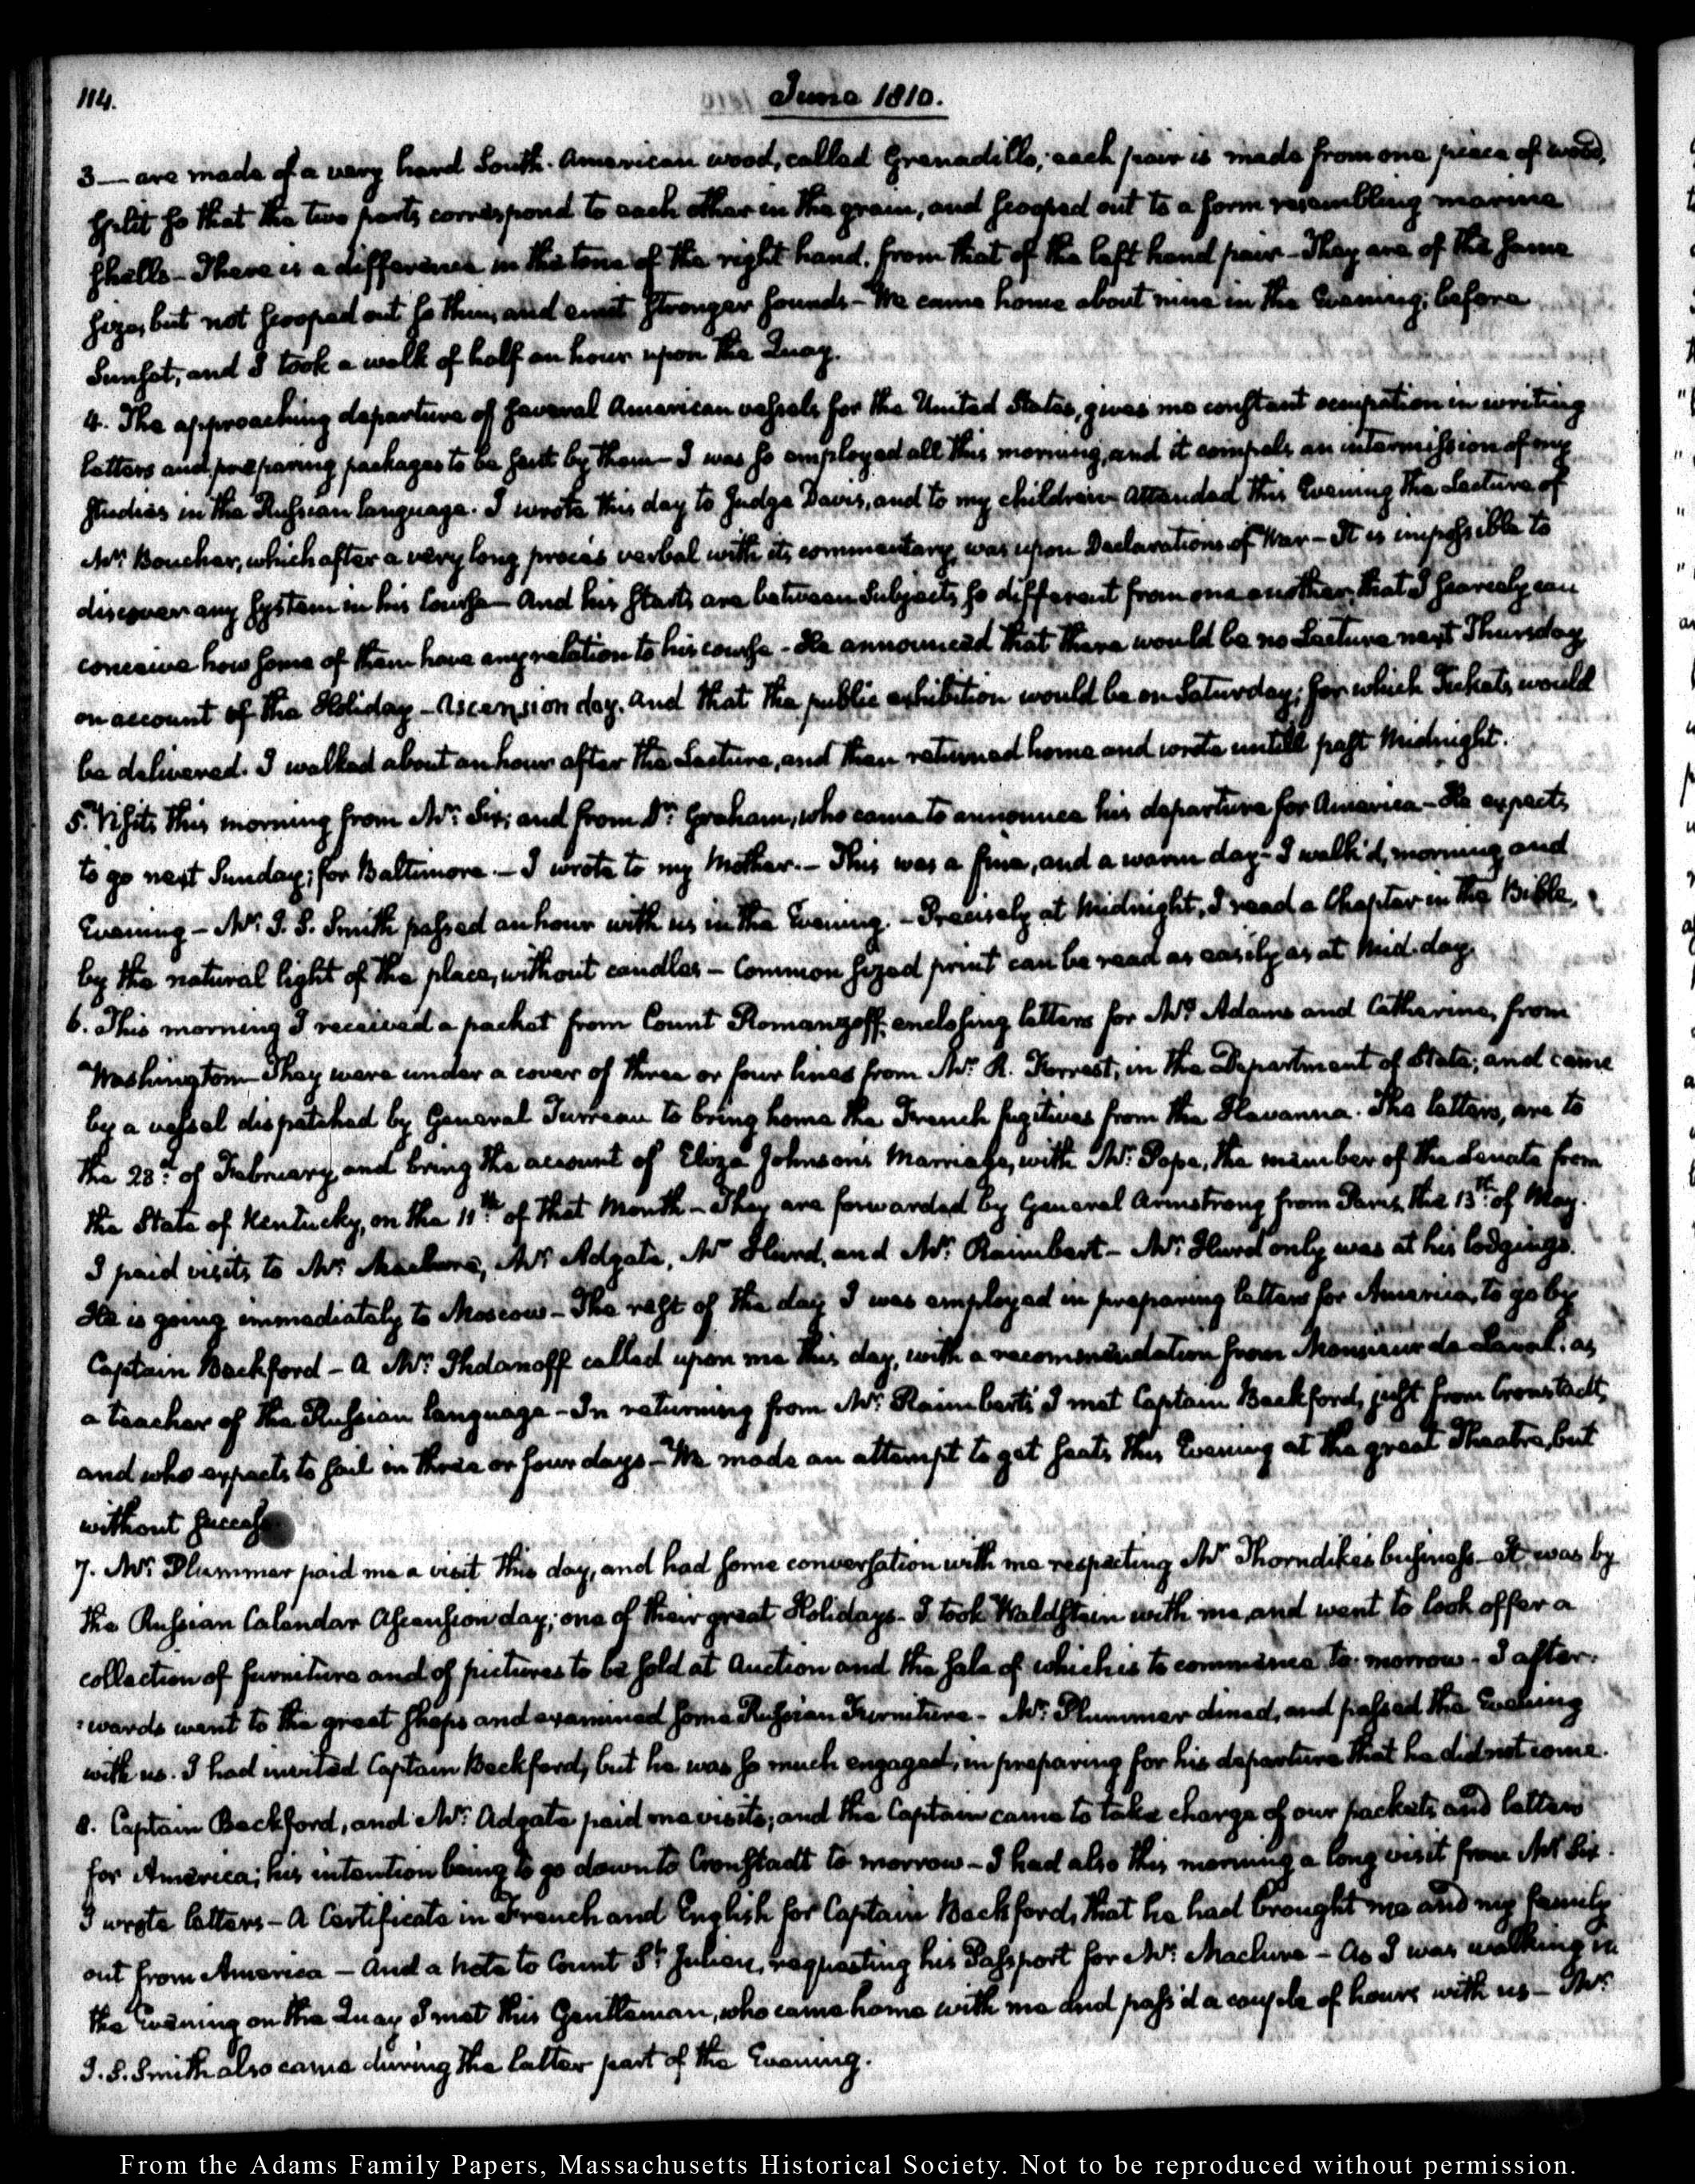 114.
June 1810.
3 — are made of a very hard South-American wood, called Grenadillo; each pair is made from one piece of wood,
split so that the two parts correspond to each other in the grain, and scooped out to a form resembling marine
shells — There is a difference in the tone of the right hand, from that of the left hand pair — They are of the same
size, but not scooped out so thin, and emit stronger sounds — We came home about nine in the Evening; before
Sunset, and I took a walk of half an hour upon the Quay.
4. The approaching departure of several American vessels for the United States, gives me constant occupation in writing
letters and preparing packages to be sent by them — I was so employed all this morning, and it compels an intermission of my
studies in the Russian language. I wrote this day to Judge Davis, and to my children — Attended this Evening the Lecture of
Mr. Boucher, which after a very long procès verbal with its commentary, was upon Declarations of War — It is impossible to
discover any System in his Course — And his starts are between Subjects so different from one another, that I scarcely can
conceive how some of them have any relation to his course — He announced that there would be no Lecture next Thursday
on account of the Holiday — Ascension day. And that the public exhibition would be on Saturday; for which Tickets would
be delivered. I walked about an hour after the Lecture, and then returned home and wrote untill past Midnight.
5. Visits this morning from Mr. Six; and from Dr. Graham, who came to announce his departure for America — He expects
to go next Sunday; for Baltimore. — I wrote to my Mother. — This was a fine, and a warm day — I walk'd, morning and
Evening — Mr. J. S. Smith passed an hour with us in the Evening. — Precisely at Midnight, I read a Chapter in the Bible,
by the natural light of the place, without candles — Common sized print can be read as easily as at Mid-day.
6. This morning I received a packet from Count Romanzoff, enclosing letters for Mrs Adams and Catherine, from
Washington — They were under a cover of three or four lines from Mr. R. Forrest, in the Department of State; and came
by a vessel dispatched by General Turreau to bring home the French fugitives from the Havanna. The letters, are to
the 28th. of February, and bring the account of Eliza Johnson's Marriage, with Mr. Pope, the member of the Senate from
the State of Kentucky, on the 11th of that Month — They are forwarded by General Armstrong from Paris, the 13th. of May.
I paid visits to Mr. Maclure, Mr. Adgate, Mr Hurd, and Mr. Raimbert — Mr. Hurd only was at his lodgings.
He is going immediately to Moscow — The rest of the day I was employed in preparing letters for America, to go by
Captain Beckford — A Mr. Shdanoff called upon me this day, with a recommendation from Monsieur de Laval: as
a teacher of the Russian language — In returning from Mr. Raimbert's I met Captain Beckford, just from Cronstadt,
and who expects to sail in three or four days — We made an attempt to get seats this Evening at the great Theatre, but
without success
7. Mr. Plummer paid me a visit this day, and had some conversation with me respecting Mr Thorndike's business — It was by
the Russian Calendar Ascension day; one of their great Holidays — I took Waldstein with me, and went to look of for a
collection of furniture and of pictures to be sold at Auction and the sale of which is to commence to-morrow — I after-
:wards went to the great shops and examined some Russian Furniture — Mr. Plummer dined, and passed the Evening
with us. I had invited Captain Beckford, but he was so much engaged, in preparing for his departure that he did not come.
8. Captain Beckford, and Mr. Adgate paid me visits; and the Captain came to take charge of our packets and letters
for America; his intention being to go down to Cronstadt to morrow — I had also this morning a long visit from Mr Six.
I wrote letters — A Certificate in French and English for Captain Beckford, that he had brought me and my family
out from America — And a note to Count St. Julien, requesting his Passport for Mr. Maclure — As I was walking in
the Evening on the Quay I met this Gentleman, who came home with me and pass'd a couple of hours with us — Mr.
J. S. Smith also came during the latter part of the Evening.
From the Adams Family Papers, Massachusetts Historical Society. Not to be reproduced without permission.